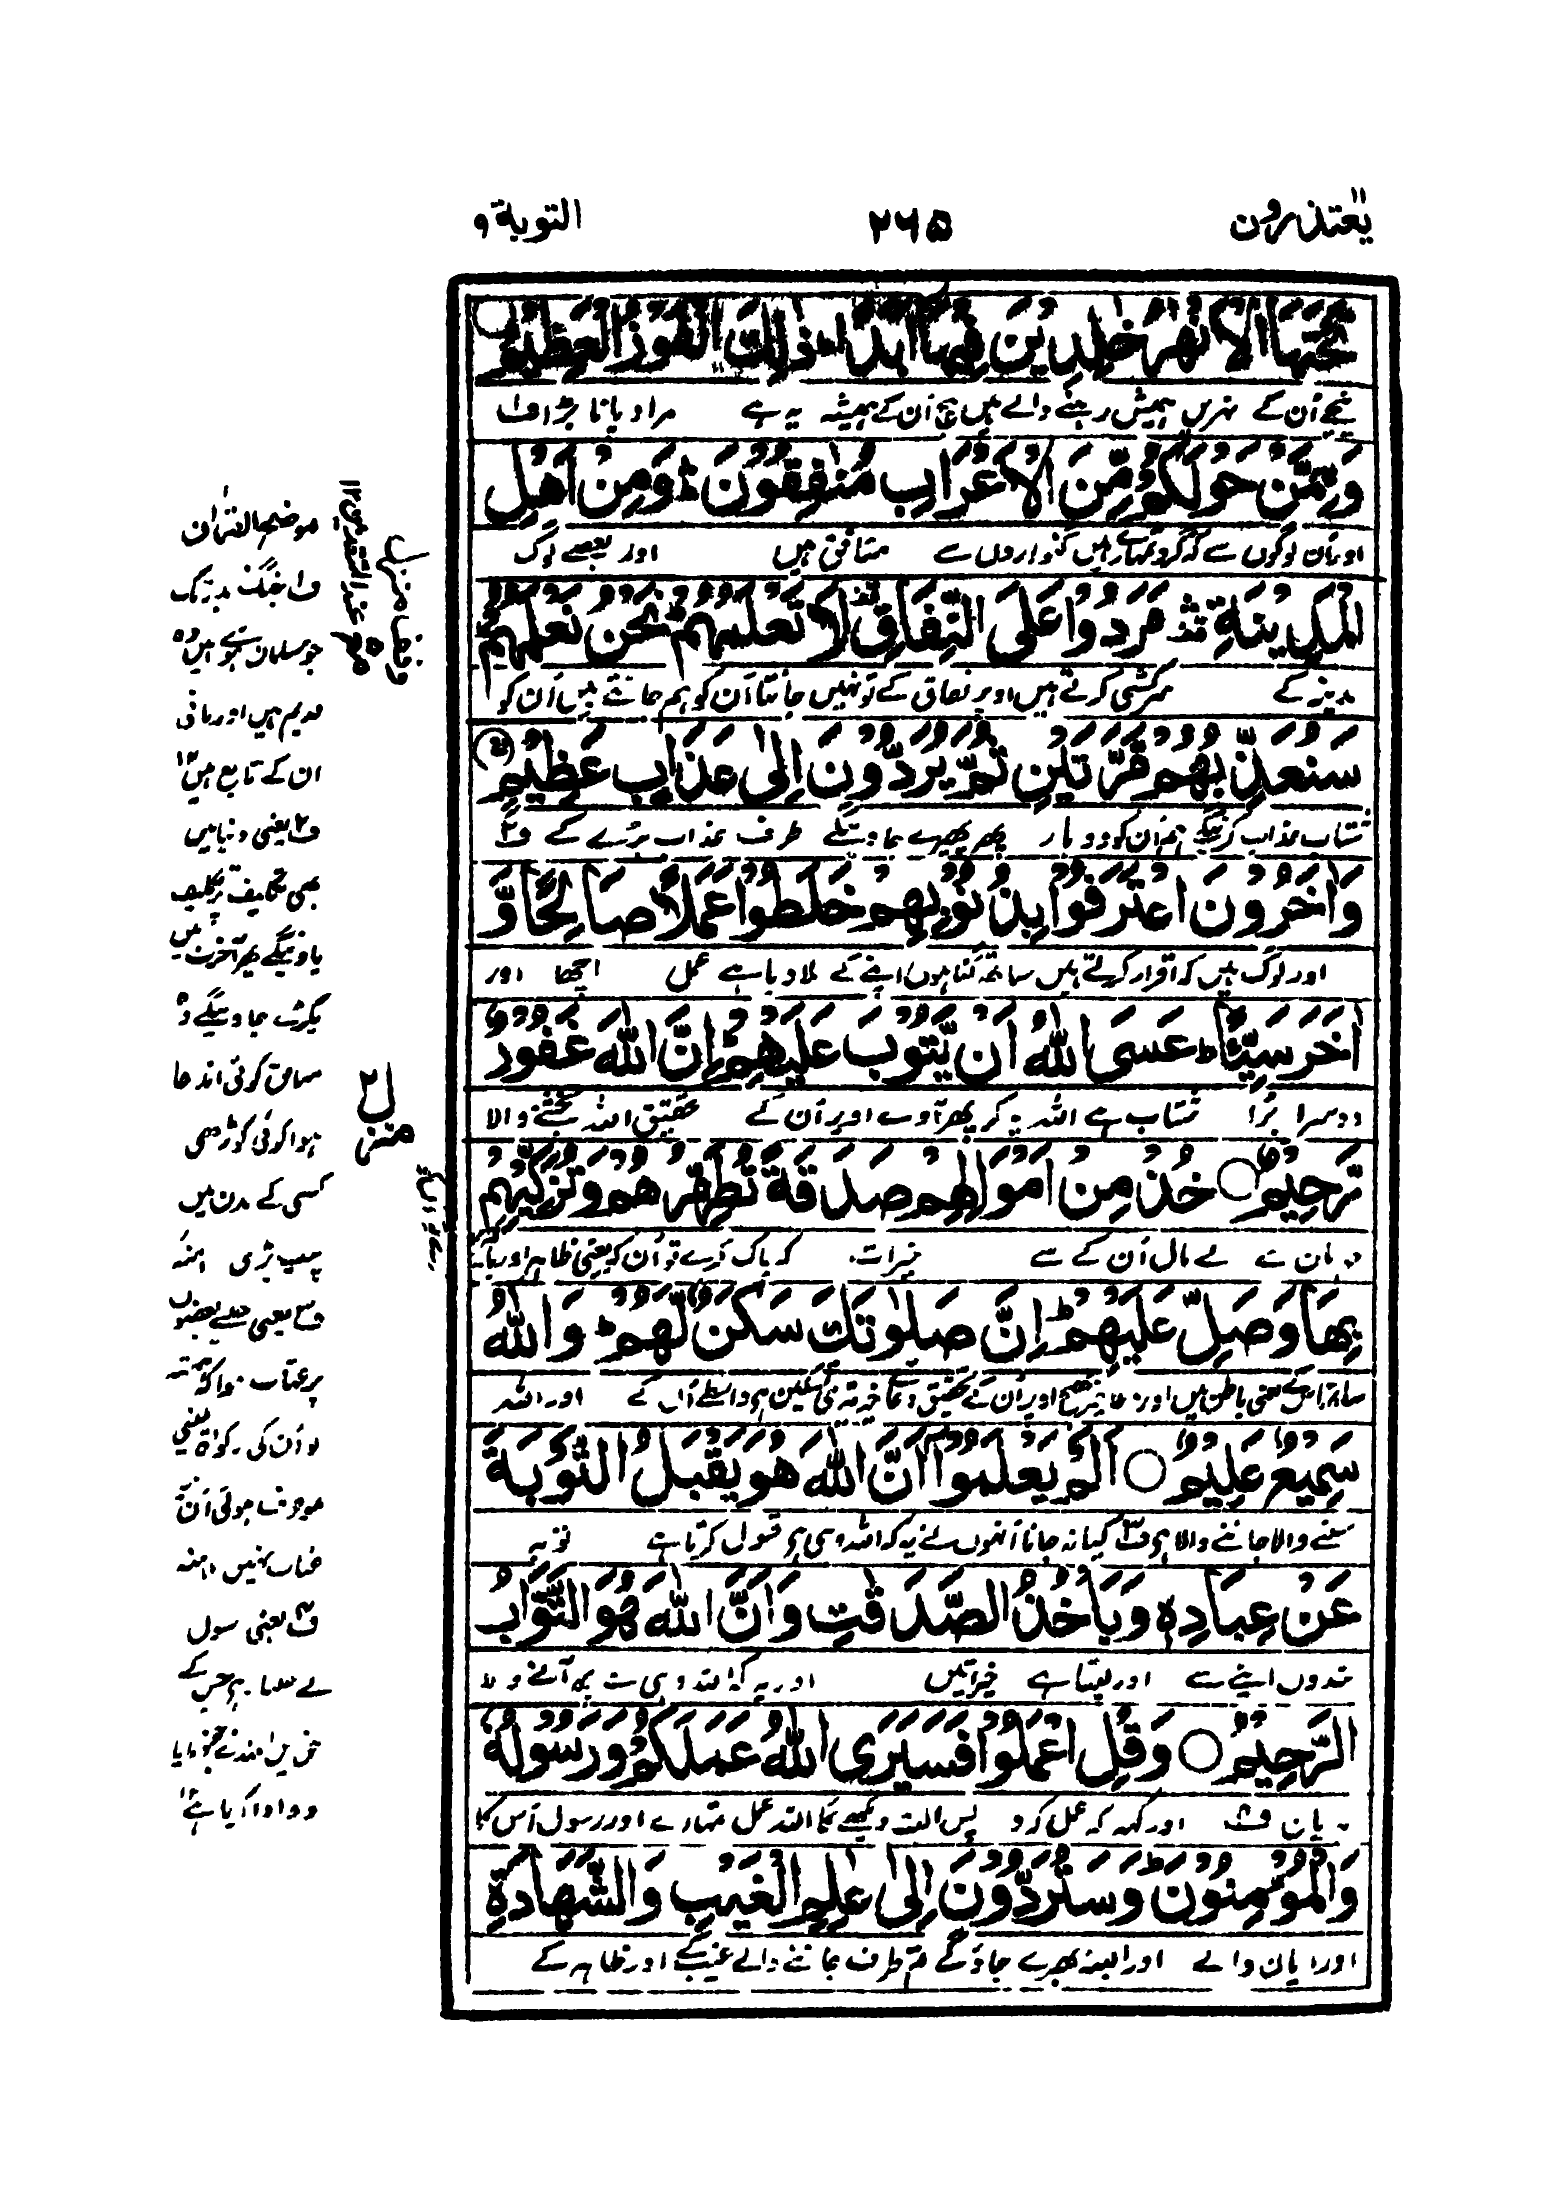 یعتذرون ۱۱
۲۶۵
التوبة ۹
تَحْتَهَا الْاَنْهٰرُ خٰلِدِيْنَ فِيْهَآ اَبَدًا ؕ ذٰلِكَ الْفَوْزُ الْعَظِيْمُ
نیچے اُن کے نہریں ہمیش رہنے والے ہیں بیچ اُن کے ہمیشہ یہ ہے مراد پانا بڑا ف۱
وَمِمَّنْ حَوْلَكُمْ مِّنَ الْاَعْرَابِ مُنٰفِقُوْنَ ؕ وَمِنْ اَهْلِ
اور اُن لوگوں سے کہ گرد تمہارے ہیں گنواروں سے منافق ہیں اور بعضے لوگ
الْمَدِيْنَةِ ۛؔ مَرَدُوْا عَلَى النِّفَاقِ ۫ لَا تَعْلَمُهُمْ ؕ نَحْنُ نَعْلَمُهُمْ ؕ
مدینہ کے سرکشی کرتے ہیں اوپر نفاق کے تو نہیں جانتا اُن کو ہم جانتے ہیں اُن کو
سَنُعَذِّبُهُمْ مَّرَّتَيْنِ ثُمَّ يُرَدُّوْنَ اِلٰى عَذَابٍ عَظِيْمٍ
شتاب عذاب کرینگے ہم اُن کو دو بار پھر پھیرے جاوینگے طرف عذاب بڑے کے ف۲
وَاٰخَرُوْنَ اعْتَرَفُوْا بِذُنُوْبِهِمْ خَلَطُوْا عَمَلًا صَالِحًا وَّ
اور لوگ ہیں کہ اقرار کرتے ہیں ساتھ گناہوں اپنے کے ملا دیا ہے عمل اچھا اور
اٰخَرَ سَيِّئًا ؕ عَسَى اللّٰهُ اَنْ يَّتُوْبَ عَلَيْهِمْ ؕ اِنَّ اللّٰهَ غَفُوْرٌ
دوسرا بُرا شتاب ہے اللہ یہ کہ پھر آوے اوپر اُن کے تحقیق اللہ بخشنے والا
رَّحِيْمٌ ۝ خُذْ مِنْ اَمْوَالِهِمْ صَدَقَةً تُطَهِّرُهُمْ وَتُزَكِّيْهِمْ
لے مال اُن کے سے خیرات کہ پاک کرے تو اُن کو یعنی ظاہر اور
بِهَا وَصَلِّ عَلَيْهِمْ ؕ اِنَّ صَلٰوتَكَ سَكَنٌ لَّهُمْ ؕ وَاللّٰهُ
یعنی باطن میں اور اوپر اُن کے تحقیق دعا تسکین ہے واسطے اُن کے اور اللہ
سَمِيْعٌ عَلِيْمٌ ۝ اَلَمْ يَعْلَمُوْٓا اَنَّ اللّٰهَ هُوَ يَقْبَلُ التَّوْبَةَ
سننے والا جاننے والا ہے ف۳ کیا نہ جانا اُنہوں نے یہ کہ اللہ وہی ہے قبول کرتا ہے توبہ
عَنْ عِبَادِهٖ وَيَاْخُذُ الصَّدَقٰتِ وَاَنَّ اللّٰهَ هُوَ التَّوَّابُ
بندوں اپنے سے اور لیتا ہے خیراتیں اور یہ کہ اللہ وہی ہے پھر آنے والا
الرَّحِيْمُ ۝ وَقُلِ اعْمَلُوْا فَسَيَرَى اللّٰهُ عَمَلَكُمْ وَرَسُوْلُهٗ
اور کہہ کہ عمل کرو پس البتہ دیکھے گا اللہ عمل تمہارے اور رسول اُس کا
وَالْمُؤْمِنُوْنَ ؕ وَسَتُرَدُّوْنَ اِلٰى عٰلِمِ الْغَيْبِ وَالشَّهَادَةِ
اور ایمان والے اور البتہ پھیرے جاؤگے تم طرف جاننے والے غیب کے اور ظاہر کے
موضح القرآن
ف۱ جنگ بدر تک
جو مسلمان ہوئے ہیں وہ
قدیم ہیں اور باقی
ان کے تابع ہیں
ف۲ یعنی دنیا میں
بھی تکلیف پر تکلیف
پاوینگے پھر آخرت میں
پکڑے جاوینگے وہ
منافق کوئی اندھا
ہوا کوئی کوڑھی
کسی کے بدن میں
پیپ پڑی
ف۳ یعنی جیسے بعضوں
پر عتاب ہوا کہ
تو اُن کی زکوٰۃ لینی
موقوف ہوئی اُن
عتاب نہیں
ف۴ یعنی رسول
منزل ۲